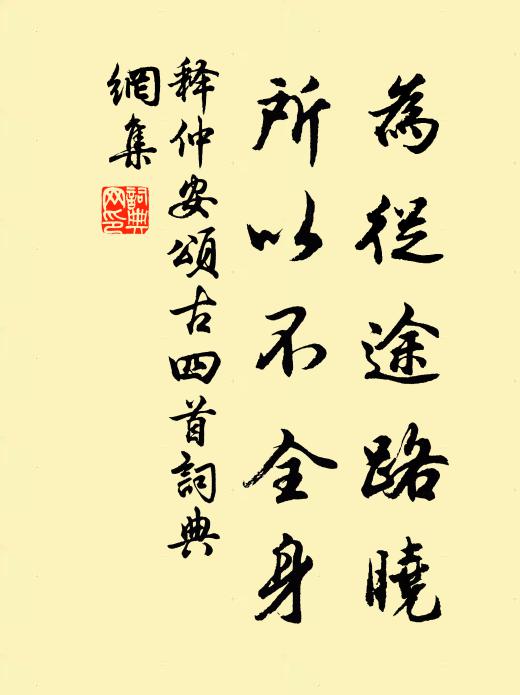 為從途路曉
所以不全身
释仲安頌古四首詞典
網集
詞典
网印